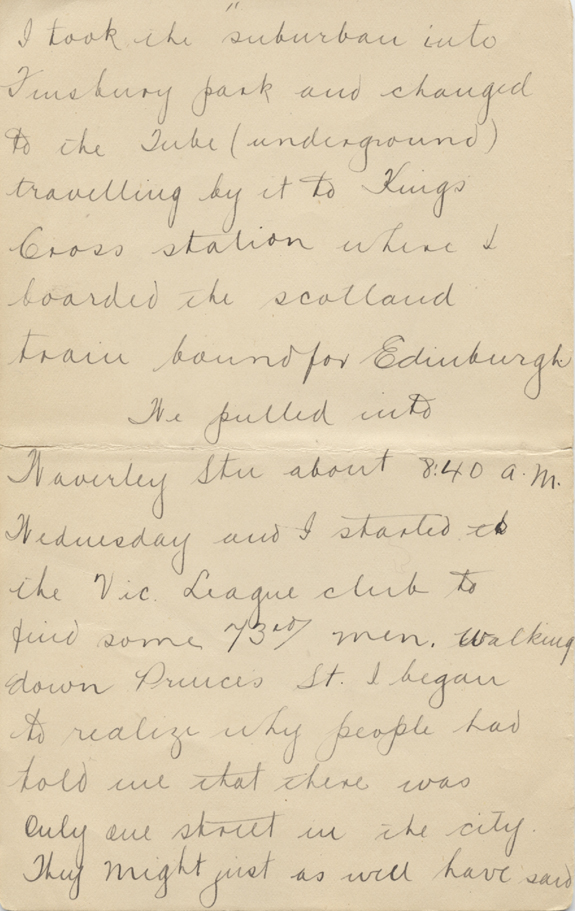 I took the "suburban into
Finsbury park and changed
to the Tube (underground)
travelling by it to Kings
Cross station where I
boarded the scotland
train bound for Edinburgh
We pulled into
Waverley Stn about 8:40 A.M.
Wednesday and I started to
the Vic. League club to
find some 73rd men. Walking
down Princes St. I began
to realize why people had
told me that there was
only one street in the city.
They might just as well have said